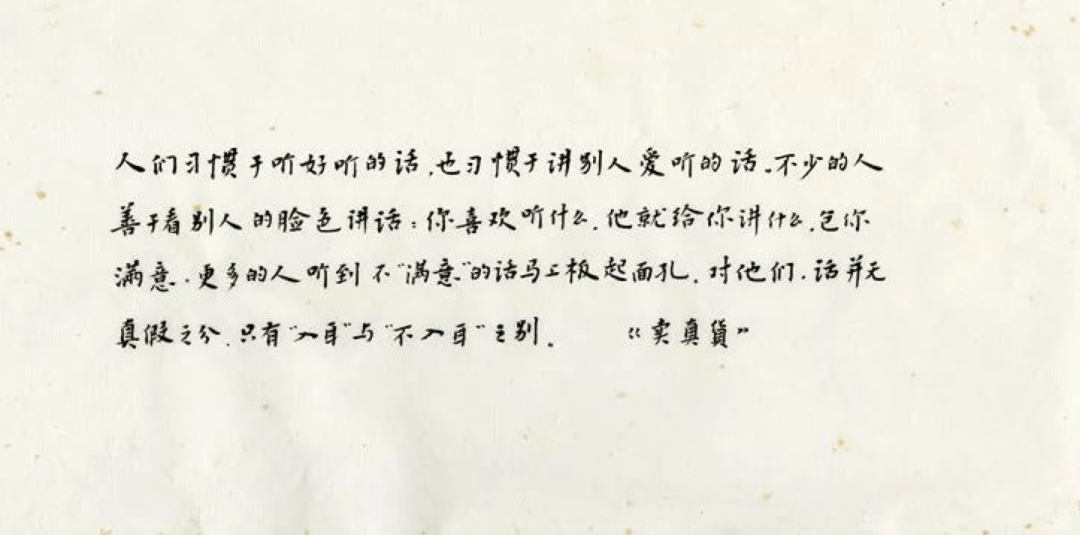 人们习惯于听好听的话,也习惯于讲别人爱听的话。不少的人
善于看别人的脸色讲话:你喜欢听什么,他就给你讲什么,包你
满意.更多的人听到不"满意"的话马上板起面孔.对他们.话并无
真假之分.只有"入耳"与"不入耳"之别。 《卖真貨》